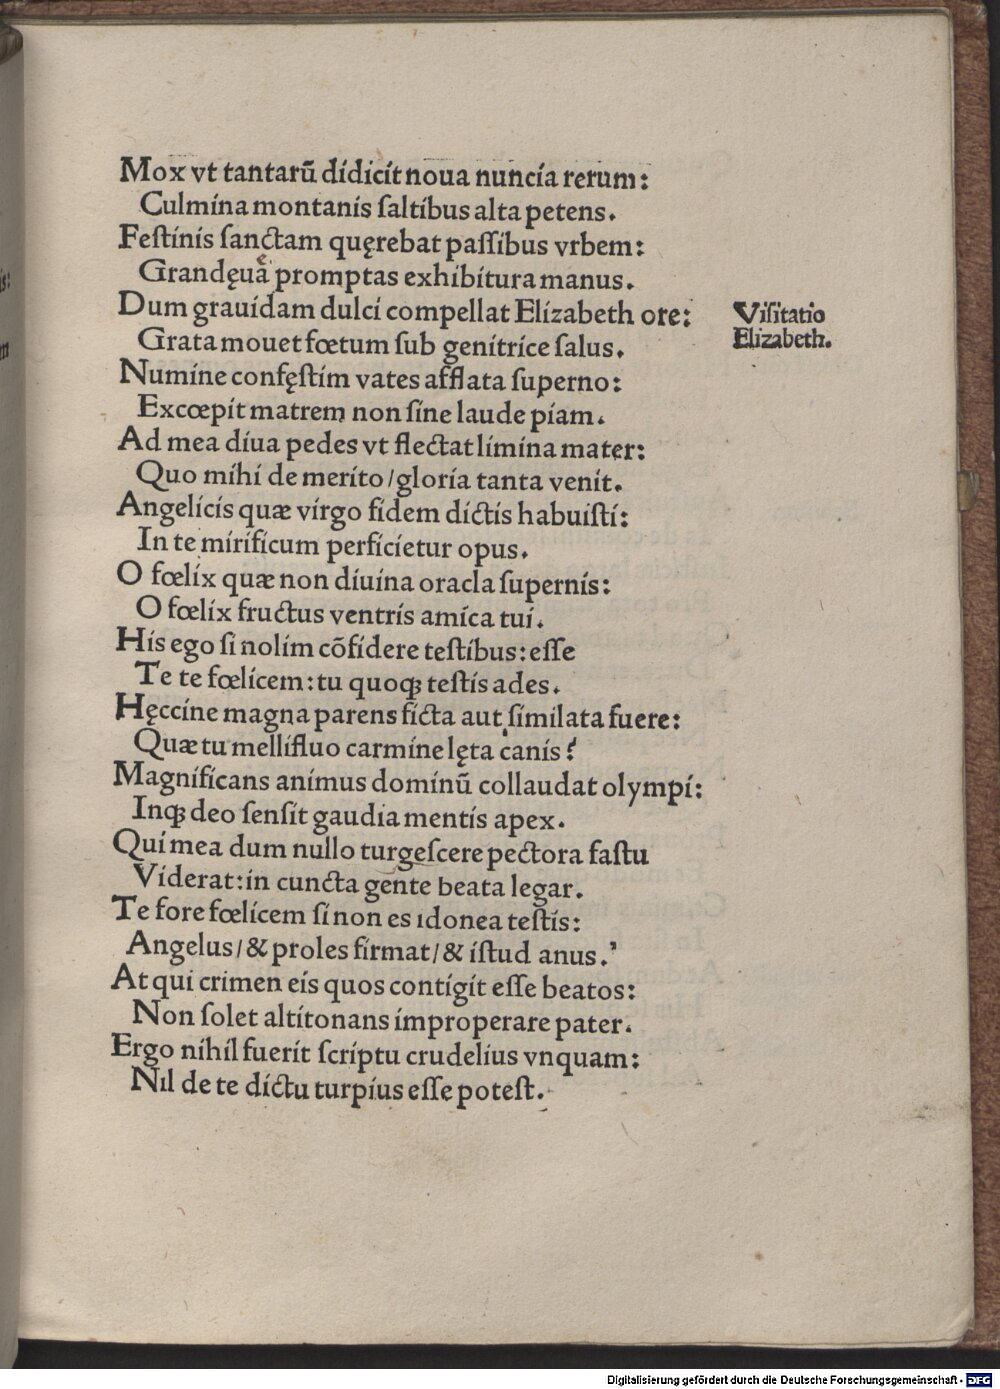 Mox vt tantarū didicit noua nuncia rerum:
Culmina montanis ſaltibus alta petens.
Feſtinis ſanctam quęrebat paſſibus vrbem:
Grandęuȩ̄ promptas exhibitura manus.
Dum grauidam dulci compellat Elizabeth ore:
Viſitatio
Elizabeth.
Grata mouet fœtum ſub genitrice ſalus.
Numine confęſtim vates afflata ſuperno:
Excœpit matrem non ſine laude piam.
Ad mea diua pedes vt flectat limina mater:
Quo mihi de merito/gloria tanta venit.
Angelicis quæ virgo fidem dictis habuiſti:
In te mirificum perficietur opus.
O fœlix quæ non diuina oracla ſupernis:
O fœlix fructus ventris amica tui.
His ego ſi nolim cōfidere teſtibus: eſſe
Te te fœlicem: tu quoqꝫ teſtis ades.
Hęccine magna parens ficta aut ſimilata fuere:
Quæ tu mellifluo carmine lęta canis?
Magnificans animus dominū collaudat olympi:
Inqꝫ deo ſenſit gaudia mentis apex.
Qui mea dum nullo turgeſcere pectora faſtu
Viderat: in cuncta gente beata legar.
Te fore fœlicem ſi non es idonea teſtis:
Angelus/& proles firmat/& iſtud anus.
At qui crimen eis quos contigit eſſe beatos:
Non ſolet altitonans improperare pater.
Ergo nihil fuerit ſcriptu crudelius vnquam:
Nil de te dictu turpius eſſe poteſt.
Digitalisierung gefördert durch die Deutsche Forschungsgemeinschaft - DFG